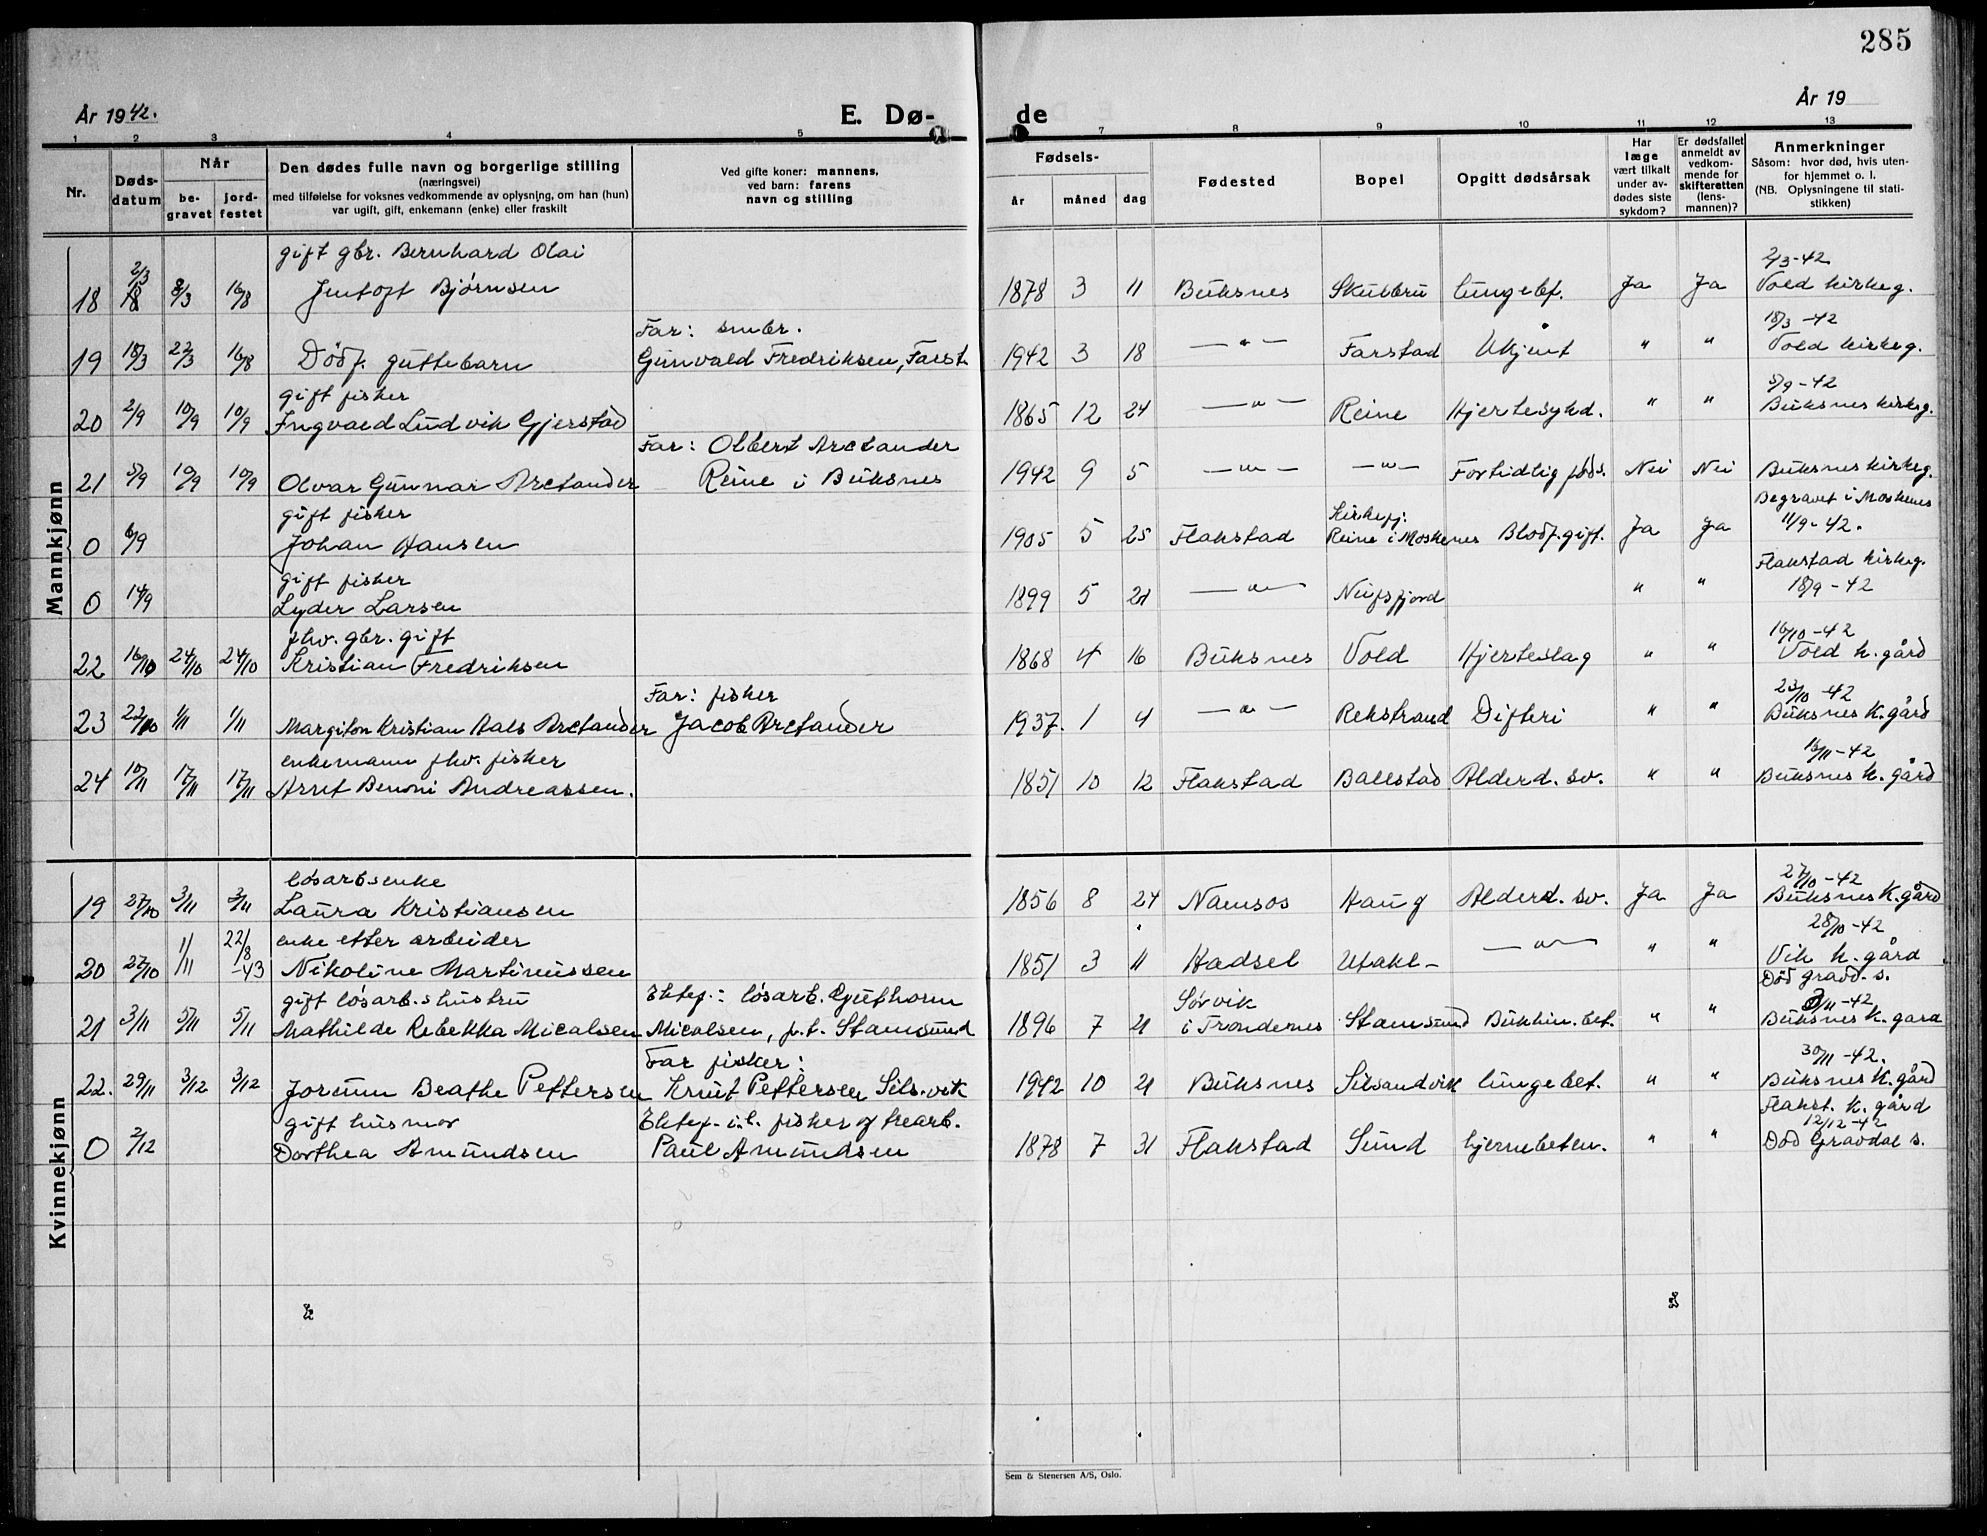 285
År 1942.
E. Dø-
de
År 19
1 2 3 4 5 7 8 9 10 11 12 13
Nr.
Døds-
datum
Når
be-
gravet
jord-
festet
Den dødes fulle navn og borgerlige stilling
(næringsvei)
med tilføielse for voksnes vedkommende av oplysning, om han (hun)
var ugift, gift, enkemann (enke) eller fraskilt
Ved gifte koner: mannens,
ved barn: farens
navn og stilling
Fødsels-
år
måned
dag
Fødested
Bopel
Opgitt dødsårsak
Har
læge
vært tilkalt
under av-
dødes siste
sykdom?
Er dødsfallet
anmeldt av
vedkom-
mende for
skifteretten
(lens-
mannen)?
Anmerkninger
Såsom: hvor død, hvis uten-
for hjemmet o. l.
(NB. Oplysningene til stati-
stikken)
Mannkjønn
gift gbr. Bernhard Olai 2/3-42
18 2/3 8/3 16/8 Jentoft Bjørnsen 1878 3 11 Buksnes Skulbru lungebf. Ja Ja Vold kirkeg.
Far: smbr. 18/3 -42
19 18/3 22/3 16/8 Dødf. guttebarn Gunvald Fredriksen, Farst. 1942 3 18 — " — Farstad Ukjent " " Vold kirkeg.
gift fisker 5/9 -42
20 2/9 10/9 10/9 Ingvald Ludvik Gjerstad 1865 12 24 — " — Reine Hjertesykd. " " Buksnes kirkeg.
Far: Olbert Arctander
21 5/9 10/9 10/9 Olvar Gunnar Arctander Reine i Buksnes 1942 9 5 — " — — " — Fortidlig føds. Nei Nei Buksnes kirkeg.
gift fisker Kirkefj. Begravet i Moskenes
0 6/9 Johan Hansen 1905 5 25 Flakstad Reine i Moskenes Blodf.gift. Ja Ja 11/9-42.
gift fisker Flakstad kirkeg.
0 14/9 Lyder Larsen 1899 5 21 — " — Nufsfjord " " 18/9 -42
fhv. gbr. gift 16/10 -42
22 16/10 24/10 24/10 Kristian Fredriksen 1868 4 16 Buksnes Vold Hjerteslag " " Vold k. gård
Far: fisker 23/10 -42
23 22/10 1/11 1/11 Margiton Kristian Aals Arctander Jacob Arctander 1937. 1 4 — " — Rekstrand Difteri " " Buksnes K. gård
enkemann fhv. fisker 13/11 -42
24 10/11 17/11 17/11 Arnt Benoni Andreassen. 1851 10 12 Flakstad Ballstad Alderd. sv. " " Buksnes k. gård
Kvinnekjønn
løsarbsenke 27/10 -42
19 27/10 3/11 3/11 Laura Kristiansen 1856 8 24 Namsos Haug Alderd. sv. Ja Ja Buksnes K. gård
enke etter arbeider 28/10 -42
20 27/10 1/11 22/8 -43 Nikoline Martinussen 1851 3 11 Hadsel Utakl- — " — " " Vik k. gård
gift løsarb.s hustru Ektef.: løsarb. Gjuthorm Sørvik Død gravd. s.
3/11 -42
21 3/11 5/11 5/11 Mathilde Rebekka Micalsen Micalsen, p.t. Stamsund 1896 7 21 i Trondernes Stamsund Bukhin. bet. " " Buksnes K. gård
Far fisker: 30/11 -42.
22. 29/11 3/12 3/12 Jorunn Beathe Pettersen Knut Pettersen Sils.vik 1942 10 21 Buksnes Silsandvik lungebet. " " Buksnes K. gård
gift husmor Ektef. i.l. fisker og trearb. Flakst. k. gård
12/12 -42
0 2/12 Dorthea Amundsen Paul Amundsen 1878 7 31 Flakstad Sund hjernebeten. " " Død Gravdal s.
Sem & Stenersen A/S, Oslo.